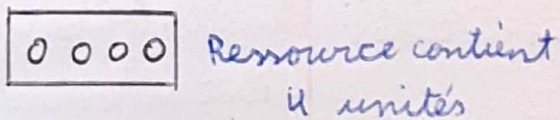 Ressource contient
4 unités